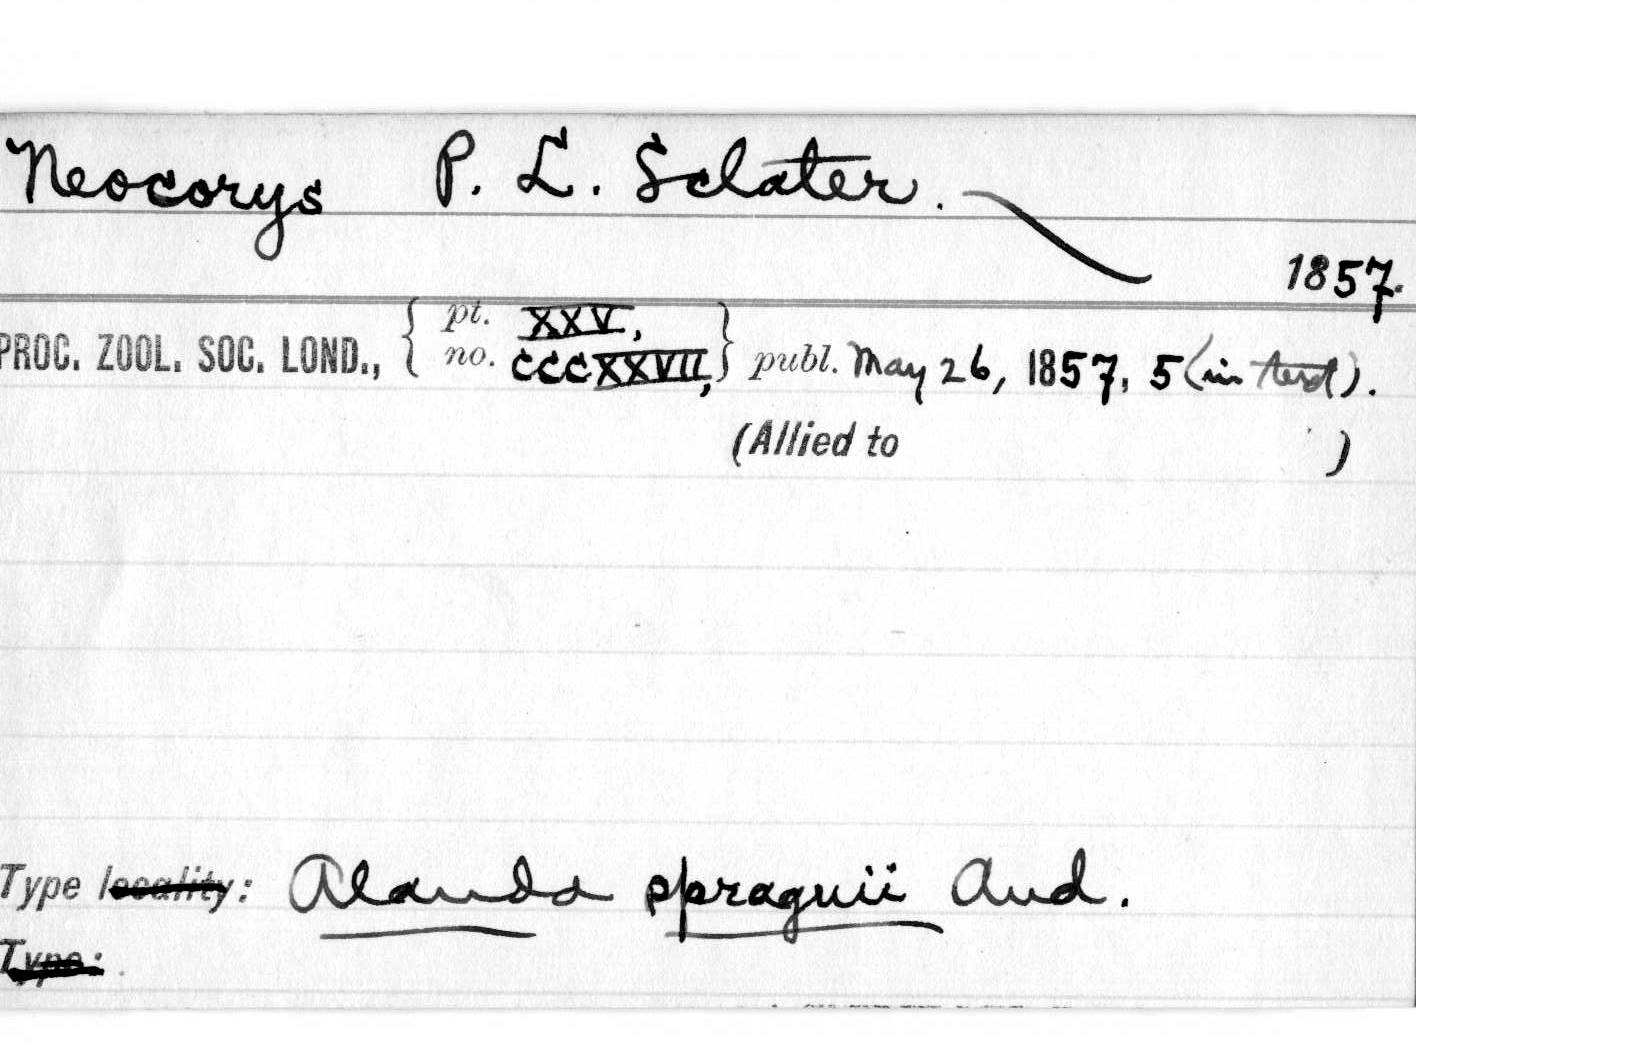 Neocorys P. L. Sclater.
1857.
PROC. ZOOL. SOC. LOND., { pt. XXV, no. CCCXXVII, } publ. May 26, 1857, 5 (in text).
(Allied to )
Type locality: Alauda spraguii Aud.
Type: